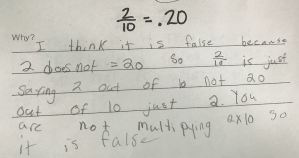 2/10 = .20
Why?
I think it is false because
2 does not = 20 so 2/10 is just
saying 2 out of 10 not 20
out of 10 just 2. You
are not multipying 2x10 so
it is false